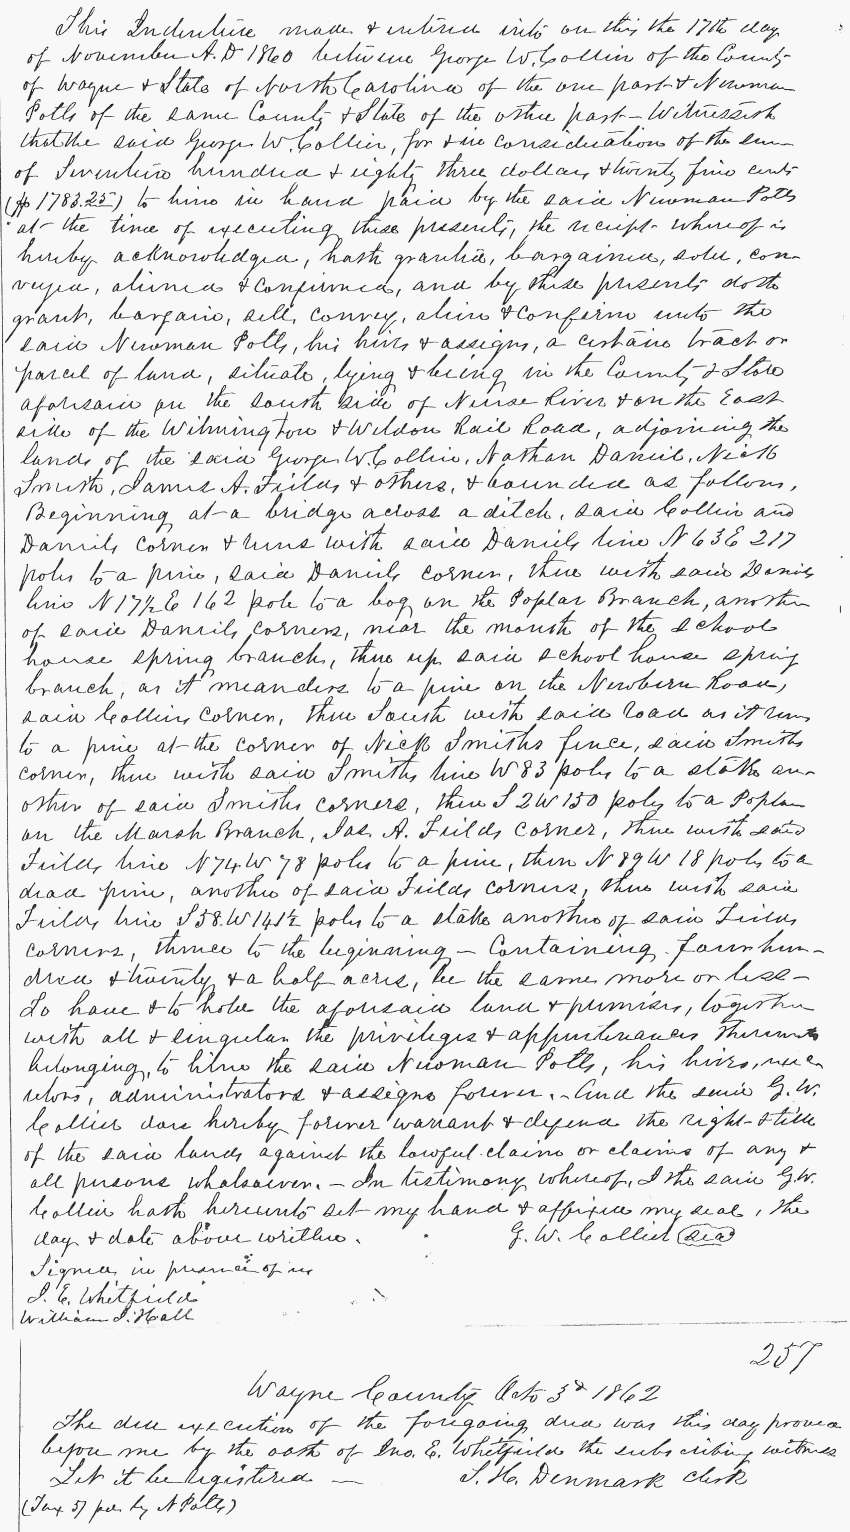 This Indenture made & entered into on this the 17th day
of November A.D 1860 between George W. Collier of the County
of Wayne & State of North Carolina of the one part & Newman
Potts of the same County & State of the other part - Witnesseth
that the said George W. Collier, for & in consideration of the sum
of Seventeen hundred & eighty three dollars & twenty five cents
($1783.25) to him in hand paid by the said Newman Potts
at the time of executing these presents, the receipt whereof is
hereby acknowledged, hath granted, bargained, sold, con-
veyed, aliened & confirmed, and by these presents doth
grant, bargain, sell, convey, alien & confirm unto the
said Newman Potts, his heirs & assigns, a certain tract or
parcel of land, situate, lying & being in the County & State
aforesaid on the south side of Neuse River & on the East
side of the Wilmington & Weldon Rail Road, adjoining the
lands of the said George W. Collier, Nathan Daniel, Nick
Smith, James A. Fields & others, & bounded as follows,
Beginning at a bridge across a ditch, said Collier and
Daniels corner & runs with said Daniels line N 63 E 217
poles to a pine, said Daniels corner, thence with said Daniels
line N 17½ E 162 pole to a bog on the Poplar Branch, another
of said Daniels corners, near the mouth of the school
house spring branch, thence up said school house spring
branch, as it meanders to a pine on the Newbern Road,
said Colliers corner, thence South with said road as it runs
to a pine at the corner of Nick Smiths fence, said Smiths
corner, thence with said Smiths line W 83 poles to a stake an-
other of said Smiths corners, thence S 2 W 150 poles to a Poplar
on the Marsh Branch, Jas. A. Fields corner, thence with said
Fields line N 74 W 78 poles to a pine, then N 89 W 18 poles to a
dead pine, another of said Fields corners, thence with said
Fields line S 58. W 141½ poles to a stake another of said Fields
corners, thence to the beginning - Containing four hun-
dred & twenty & a half acres, be the same more or less -
To have & to hold the aforesaid land & premises, together
with all & singular the privileges & appurtenances thereunto
belonging, to him the said Newman Potts, his heirs, exec-
utors, administrators & assigns forever. - And the said G. W.
Collier does hereby forever warrant & defend the right & title
of the said lands against the lawful claim or claims of any &
all persons whatsoever. - In testimony whereof, I the said G. W.
Collier hath hereunto set my hand & affixed my seal, the
day & date above written. G. W. Collier (seal)
Signed in presence of us
J. E. Whitfield
William J. Hall
257
Wayne County Octo 3d 1862
The due execution of the foregoing deed was this day proved
before me by the oath of Jno. E. Whitfield the subscribing witness
Let it be registered - S. H. Denmark Clerk
(Tax pd by N Potts)